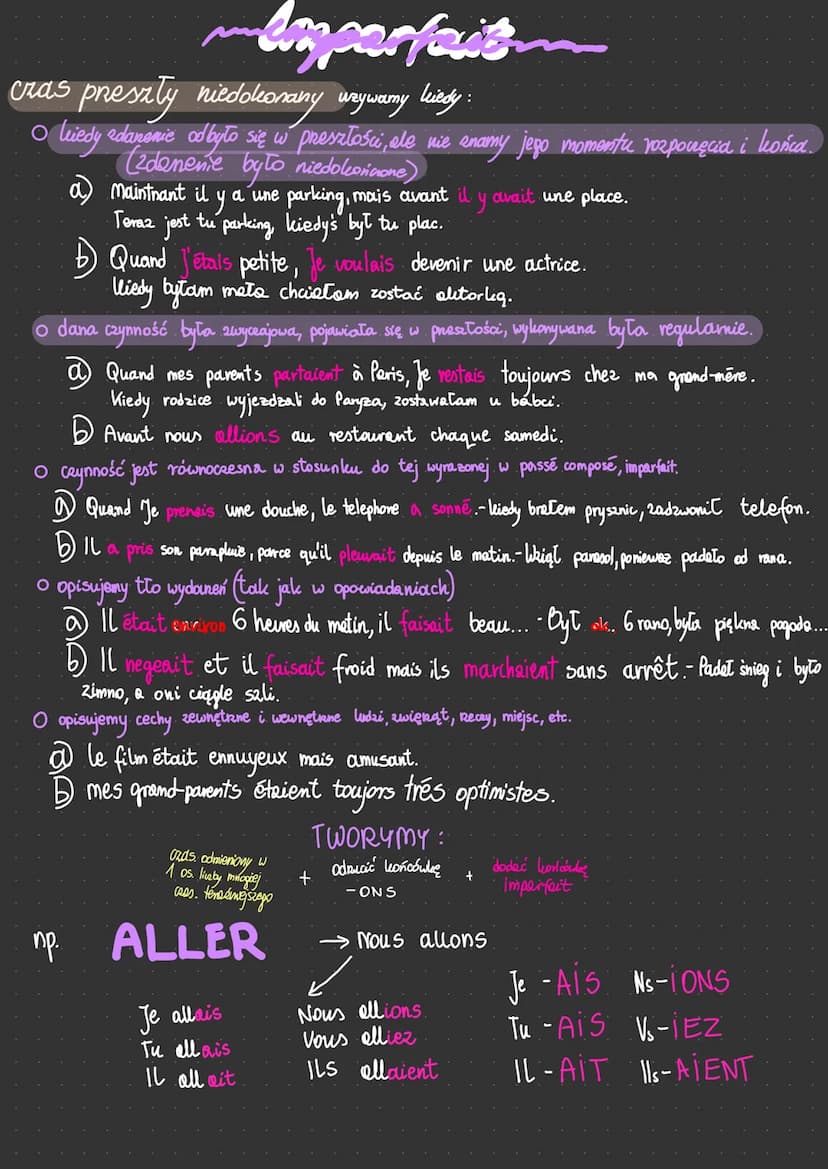 Imparfait
czas przeszły niedokonany używamy kiedy:
○ kiedy zdarzenie odbyło się w przeszłości, ale nie znamy jego momentu rozpoczęcia i końca.
(zdarzenie było niedokończone)
a) Maintnant il y a une parking, mais avant il y avait une place.
Teraz jest tu parking, kiedyś był tu plac.
b) Quand j'étais petite, je voulais devenir une actrice.
Kiedy byłam mała chciałam zostać aktorką.
○ dana czynność była zwyczajowa, pojawiała się w przeszłości, wykonywana była regularnie.
a) Quand mes parents partaient à Paris, Je restais toujours chez ma grand-mère.
Kiedy rodzice wyjeżdżali do Paryża, zostawałam u babci.
b) Avant nous allions au restaurant chaque samedi.
○ czynność jest równoczesna w stosunku do tej wyrażonej w passé composé, imparfait.
a) Quand Je prenais une douche, le telephone a sonné.-kiedy brałem prysznic, zadzwonił telefon.
b) Il a pris son parapluie, parce qu'il pleuvait depuis le matin.-Wziął parasol, ponieważ padało od rana.
○ opisujemy tło wydarzeń (tak jak w opowiadaniach)
a) Il était environ 6 heures du matin, il faisait beau... - Był ok. 6 rano, była piękna pogoda...
b) Il negeait et il faisait froid mais ils marchaient sans arrêt.- Padał śnieg i było
zimno, a oni ciągle szli.
○ opisujemy cechy zewnętrzne i wewnętrzne ludzi, zwierząt, rzeczy, miejsc, etc.
a) le film était ennuyeux mais amusant.
b) mes grand-parents étaient toujors trés optimistes.
TWORZYMY:
czas. odmieniony w
1 os. liczby mnogiej
czas. teraźniejszego
+
odrzucić końcówkę
-ONS
+
dodać końcówkę
imparfait
np. ALLER → Nous allons
Je allais
Tu allais
Il allait
Nous allions
Vous alliez
ILS allaient
Je -AIS Ns-IONS
Tu -AIS Vs-IEZ
IL -AIT Ils-AIENT